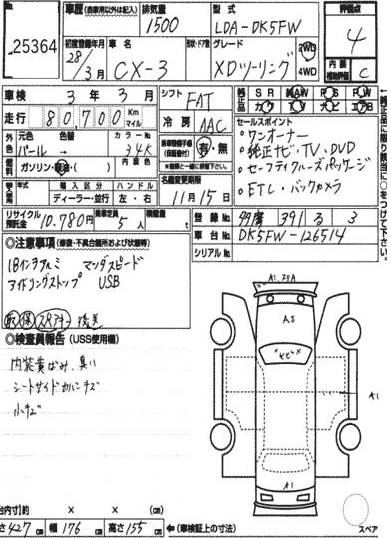 25364
車歴(自家用以外は記入)
排気量
1500
型式
LDA-DK5FW
評価点
4
初度登録年月
28/3月
車名
CX-3
形状・ドア数
グレード
XDツーリング
2WD
4WD
内装補助評価
C
車検
3年3月
シフト
FAT
純正品
SR 純AW PS PW
カワ TV ナビ エアB
走行
80700
Km
マイル
冷房
AAC
外色
元色
パール
色替
→
カラーNo.
34K
有・無
セールスポイント
・ワンオーナー
・純正ナビ・TV・DVD
・セーフティクルーズパッケージ
・ETC・バックカメラ
燃料
ガソリン・軽油・( )
内装色
名義変更期限
11月15日
輸入車
年式
輸入区分
ディーラー・並行
ハンドル
左・右
リサイクル預託金
10,780円
乗車定員
5人
積載量
t
登録No.
多摩 391 る 3
車台No.
DK5FW-126514
シリアルNo.
◎注意事項(修復・不具合箇所および状態等)
18インチアルミ マツダスピード
アイドリングストップ USB
取保 スペアキー 後送
◎検査員報告(USS使用欄)
内装黄ばみ、臭い
シートサイドカバーキズ
小キズ
A1
AS
A1
(台内寸) × × (cm)
さ427cm 幅176cm 高さ155cm ←(車検証上の寸法)
スペア